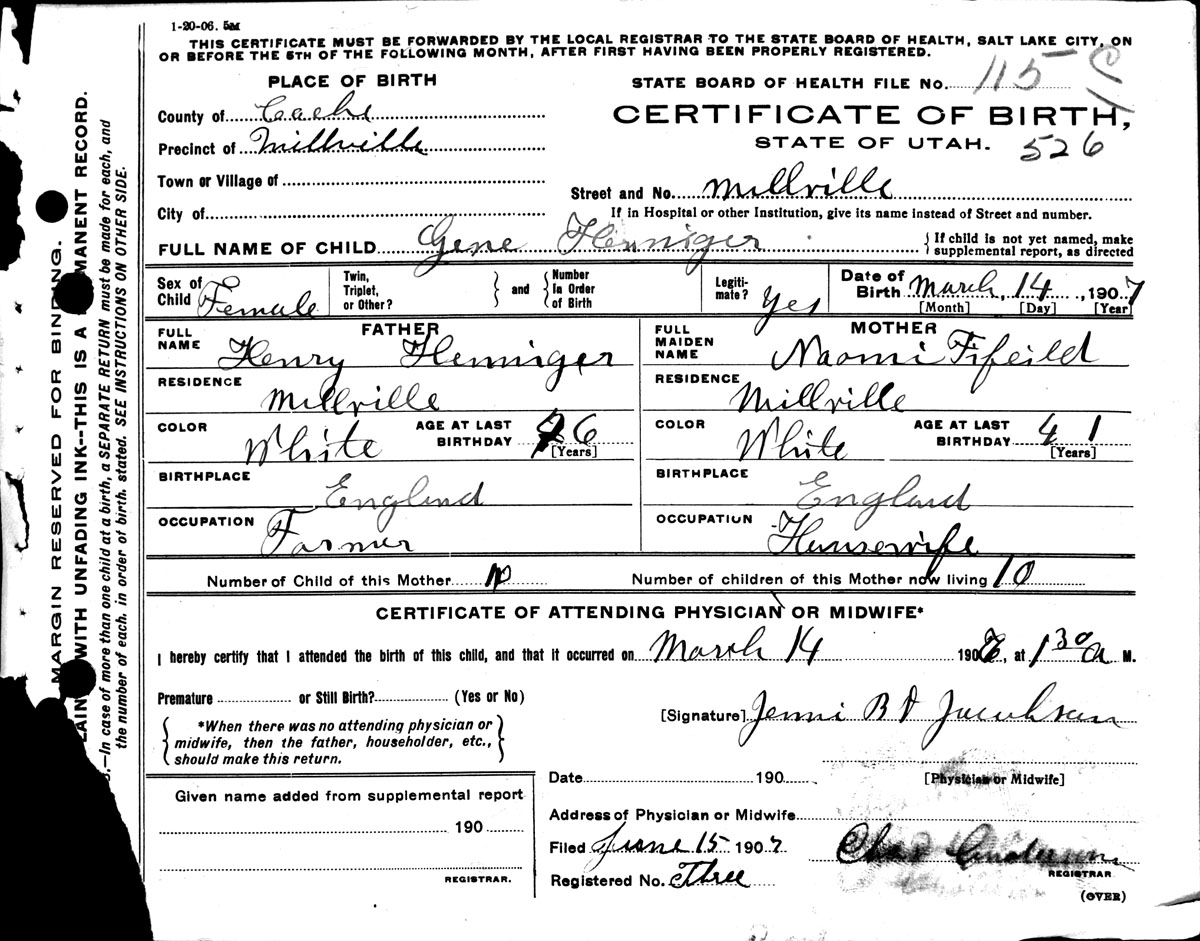 1-20-06. 5M
THIS CERTIFICATE MUST BE FORWARDED BY THE LOCAL REGISTRAR TO THE STATE BOARD OF HEALTH, SALT LAKE CITY, ON
OR BEFORE THE 5TH OF THE FOLLOWING MONTH, AFTER FIRST HAVING BEEN PROPERLY REGISTERED.
PLACE OF BIRTH
STATE BOARD OF HEALTH FILE No. 115 C
County of
CERTIFICATE OF BIRTH,
Precinct of Millville
STATE OF UTAH. 526
Town or Village of
Street and No. Millville
City of
If in Hospital or other Institution, give its name instead of Street and number.
FULL NAME OF CHILD Gene
If child is not yet named, make
supplemental report, as directed
Sex of Child Female
Twin, Triplet, or Other?
and
Number In Order of Birth
Legitimate? Yes
Date of Birth March, 14, 1907
[Month] [Day] [Year]
FATHER
FULL NAME Henry
RESIDENCE Millville
COLOR White
AGE AT LAST BIRTHDAY 6
[Years]
BIRTHPLACE England
OCCUPATION Farmer
MOTHER
FULL MAIDEN NAME Naomi Fifeild
RESIDENCE Millville
COLOR White
AGE AT LAST BIRTHDAY 41
[Years]
BIRTHPLACE England
OCCUPATION Hunsewife
Number of Child of this Mother 10
Number of children of this Mother now living 10
CERTIFICATE OF ATTENDING PHYSICIAN OR MIDWIFE*
I hereby certify that I attended the birth of this child, and that it occurred on March 14 190 , at 1 30 a M.
Premature or Still Birth? (Yes or No)
*When there was no attending physician or
midwife, then the father, householder, etc.,
should make this return.
[Signature] Jenni B D Jacobsen
[Physician or Midwife]
Date 190
Given name added from supplemental report
190
REGISTRAR.
Address of Physician or Midwife
Filed June 15 1907
Chas Anderson
REGISTRAR
Registered No. Three
(OVER)
MARGIN RESERVED FOR BINDING.
WITH UNFADING INK--THIS IS A MANENT RECORD.
—In case of more than one child at a birth, a SEPARATE RETURN must be made for each, and
the number of each, in order of birth, stated. SEE INSTRUCTIONS ON OTHER SIDE.